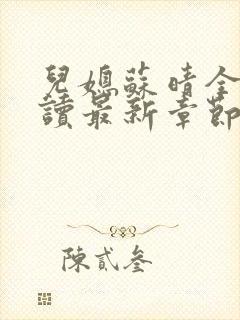 兒媳蘇晴全
讀最新章節
陳貳叁